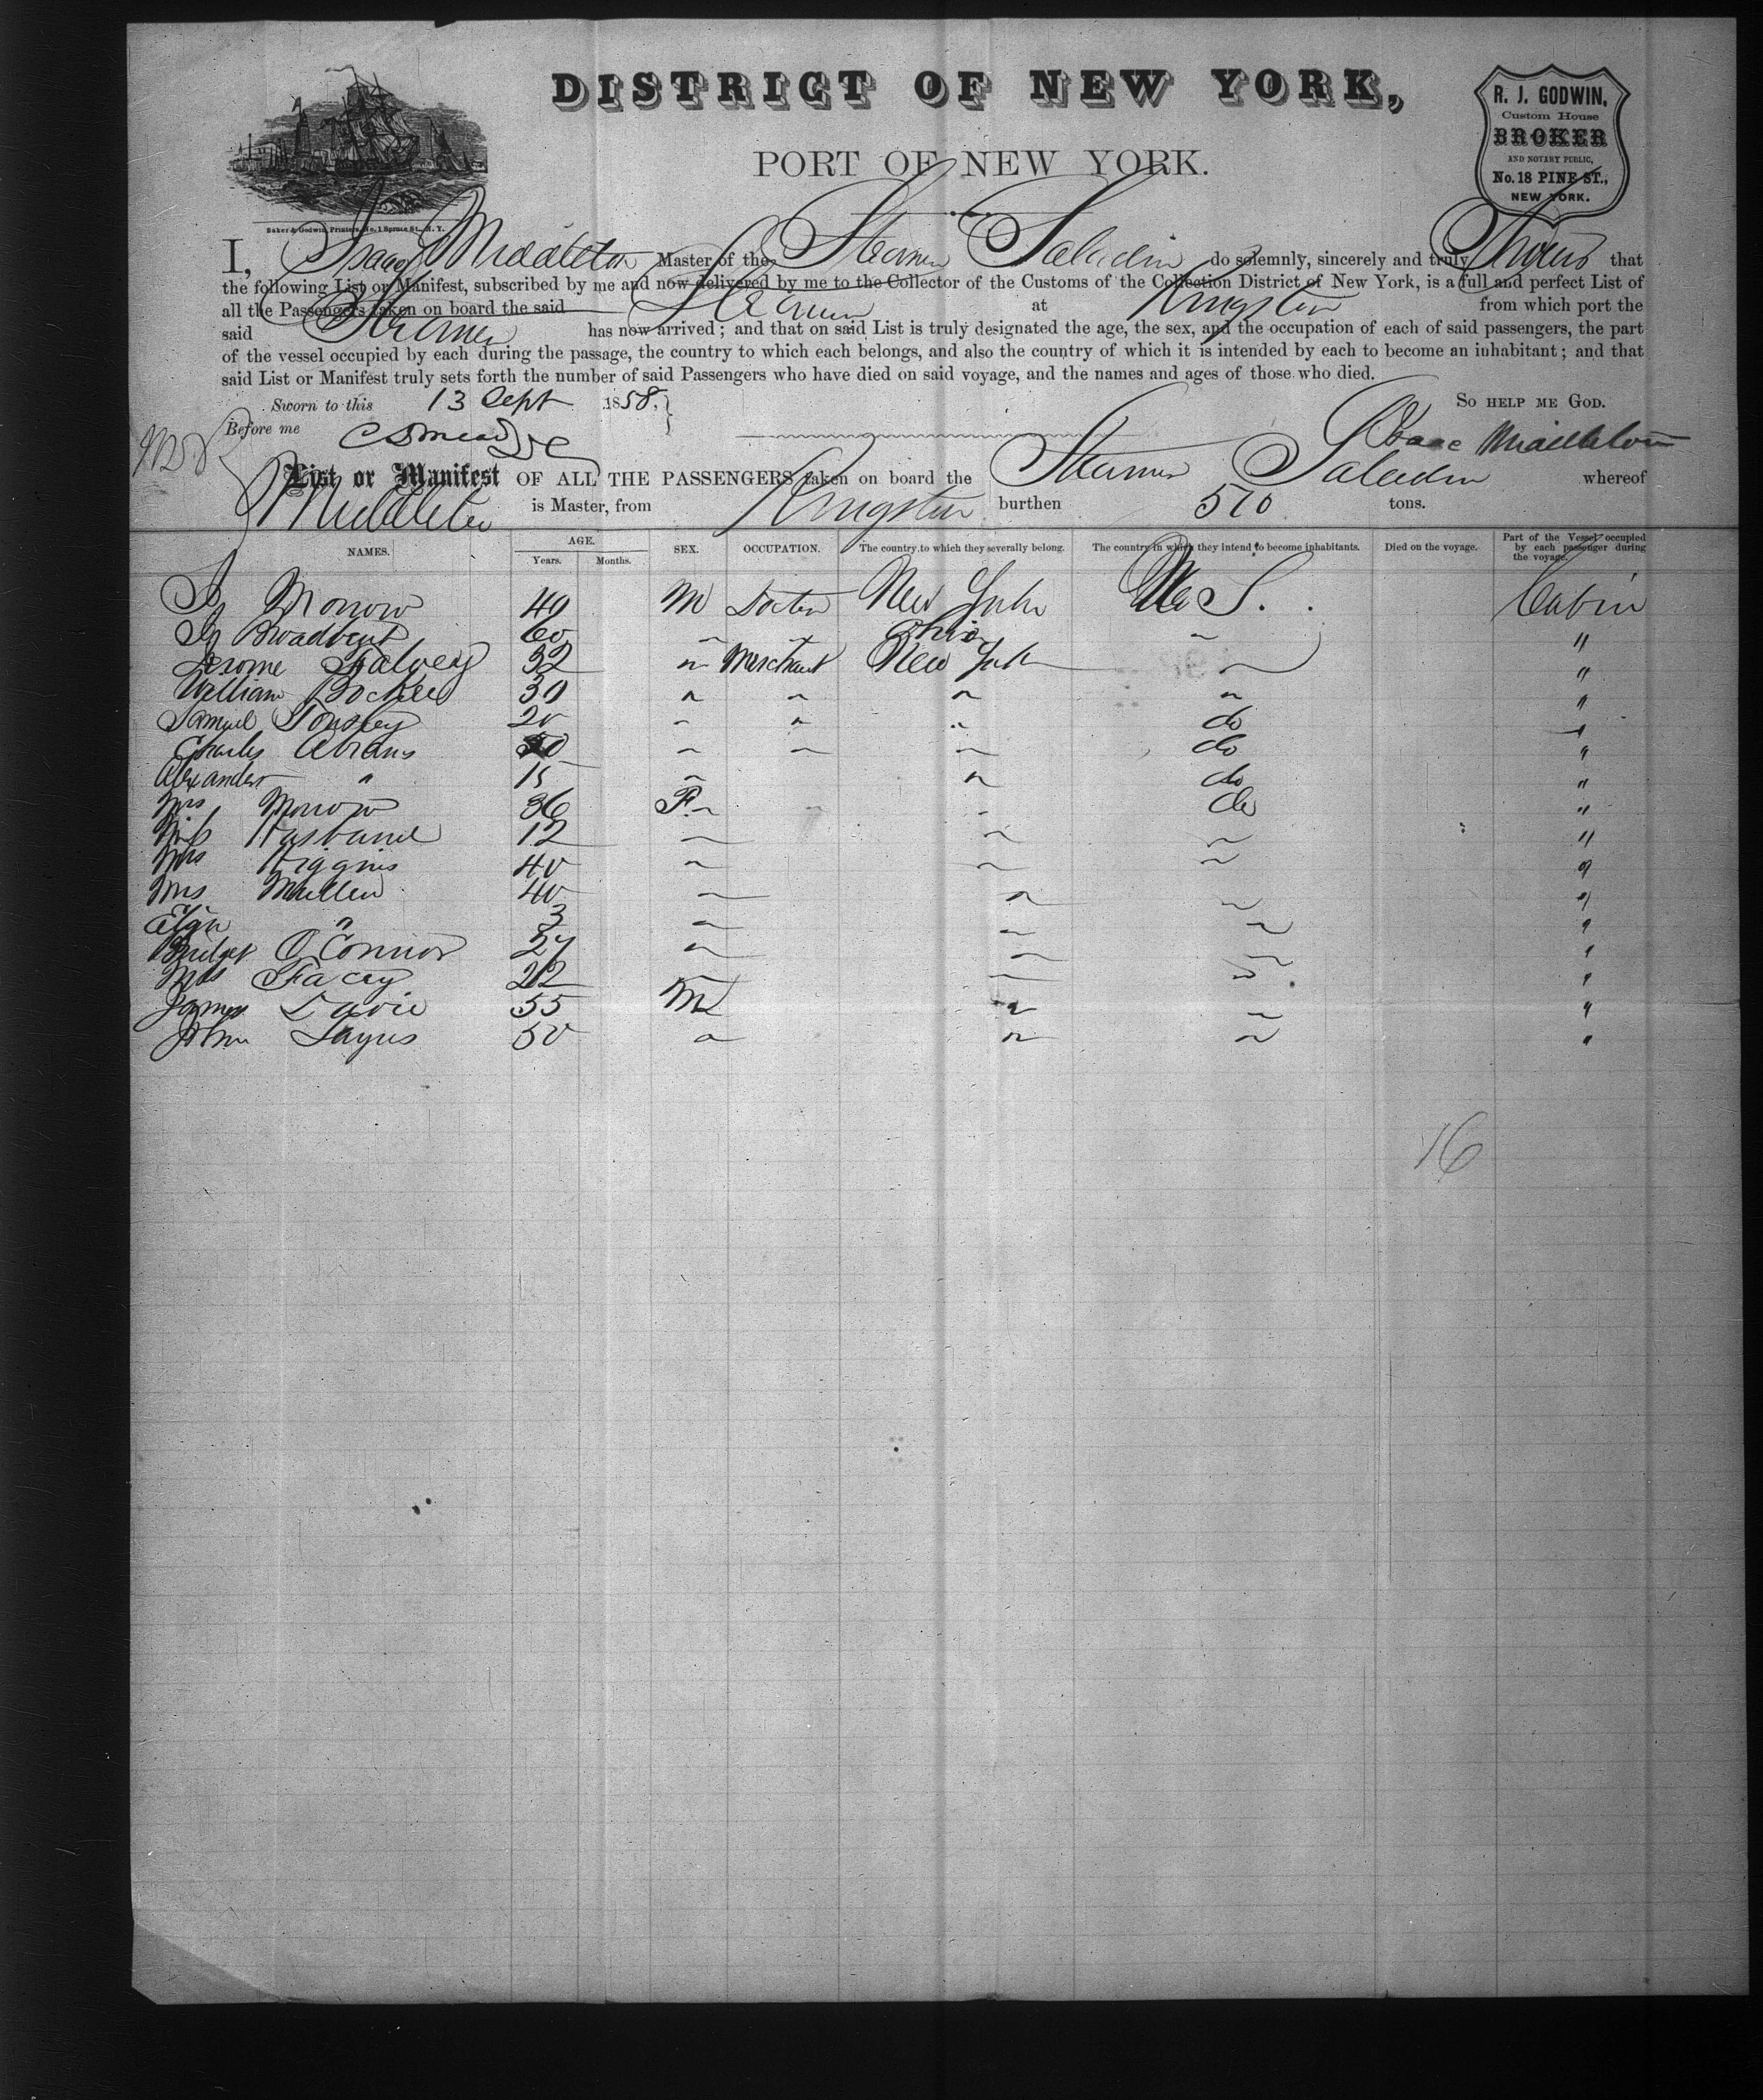 DISTRICT OF NEW YORK,
PORT OF NEW YORK.
R. J. GODWIN,
Custom House
BROKER
AND NOTARY PUBLIC,
No. 18 PINE ST.,
NEW YORK.
Baker & Godwin, Printers, No. 1 Spruce St., N. Y.
I, Isaac Middleton Master of the Steamer Saladin do solemnly, sincerely and truly Swear that
the following List or Manifest, subscribed by me and now delivered by me to the Collector of the Customs of the Collection District of New York, is a full and perfect List of
all the Passengers taken on board the said Steamer at Kingston from which port the
said Steamer has now arrived; and that on said List is truly designated the age, the sex, and the occupation of each of said passengers, the part
of the vessel occupied by each during the passage, the country to which each belongs, and also the country of which it is intended by each to become an inhabitant; and that
said List or Manifest truly sets forth the number of said Passengers who have died on said voyage, and the names and ages of those who died.
Sworn to this 13 Sept 1858, SO HELP ME GOD.
Before me Isaac Middleton
List or Manifest OF ALL THE PASSENGERS taken on board the Steamer Saladin whereof
Middleton is Master, from Kingston burthen 510 tons.
NAMES. AGE. Years. Months. SEX. OCCUPATION. The country to which they severally belong. The country in which they intend to become inhabitants. Died on the voyage. Part of the Vessel occupied by each passenger during the voyage.
Morrow 40 M Doctor New York U S. Cabin
Broadbent 60 " " Ohio " "
Jerome 32 " Merchant New York " "
William 30 " " " " "
Samuel 20 " " " do "
Charles Abrams " " " do "
Alexander " 15 " " do "
Mrs Morrow 36 F " do "
Miss Husband 12 " " " "
Mrs Higgins 40 " " " "
Mrs Mullen 40 " " " "
Eliza " 3 " " " "
Bridget O'Connor 27 " " " "
Facey 22 " " " "
James Davie 55 M " " "
John 50 " " " "
16